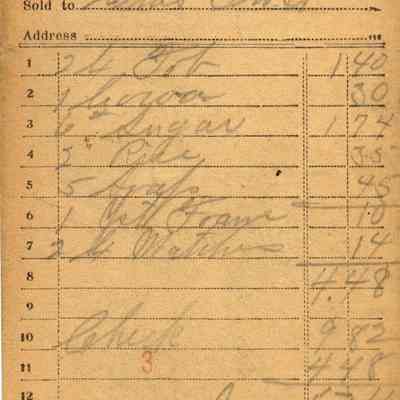 Sold to
Address
1 2 lb Tob 1 40
2 1 Cocoa 30
3 6 " Sugar 1 74
4 3 " Rice 35
5 5 Soap 45
6 1 Foam 10
7 2 Matches 14
8 4.48
9
10 Check 9 82
11 3 4 48
12